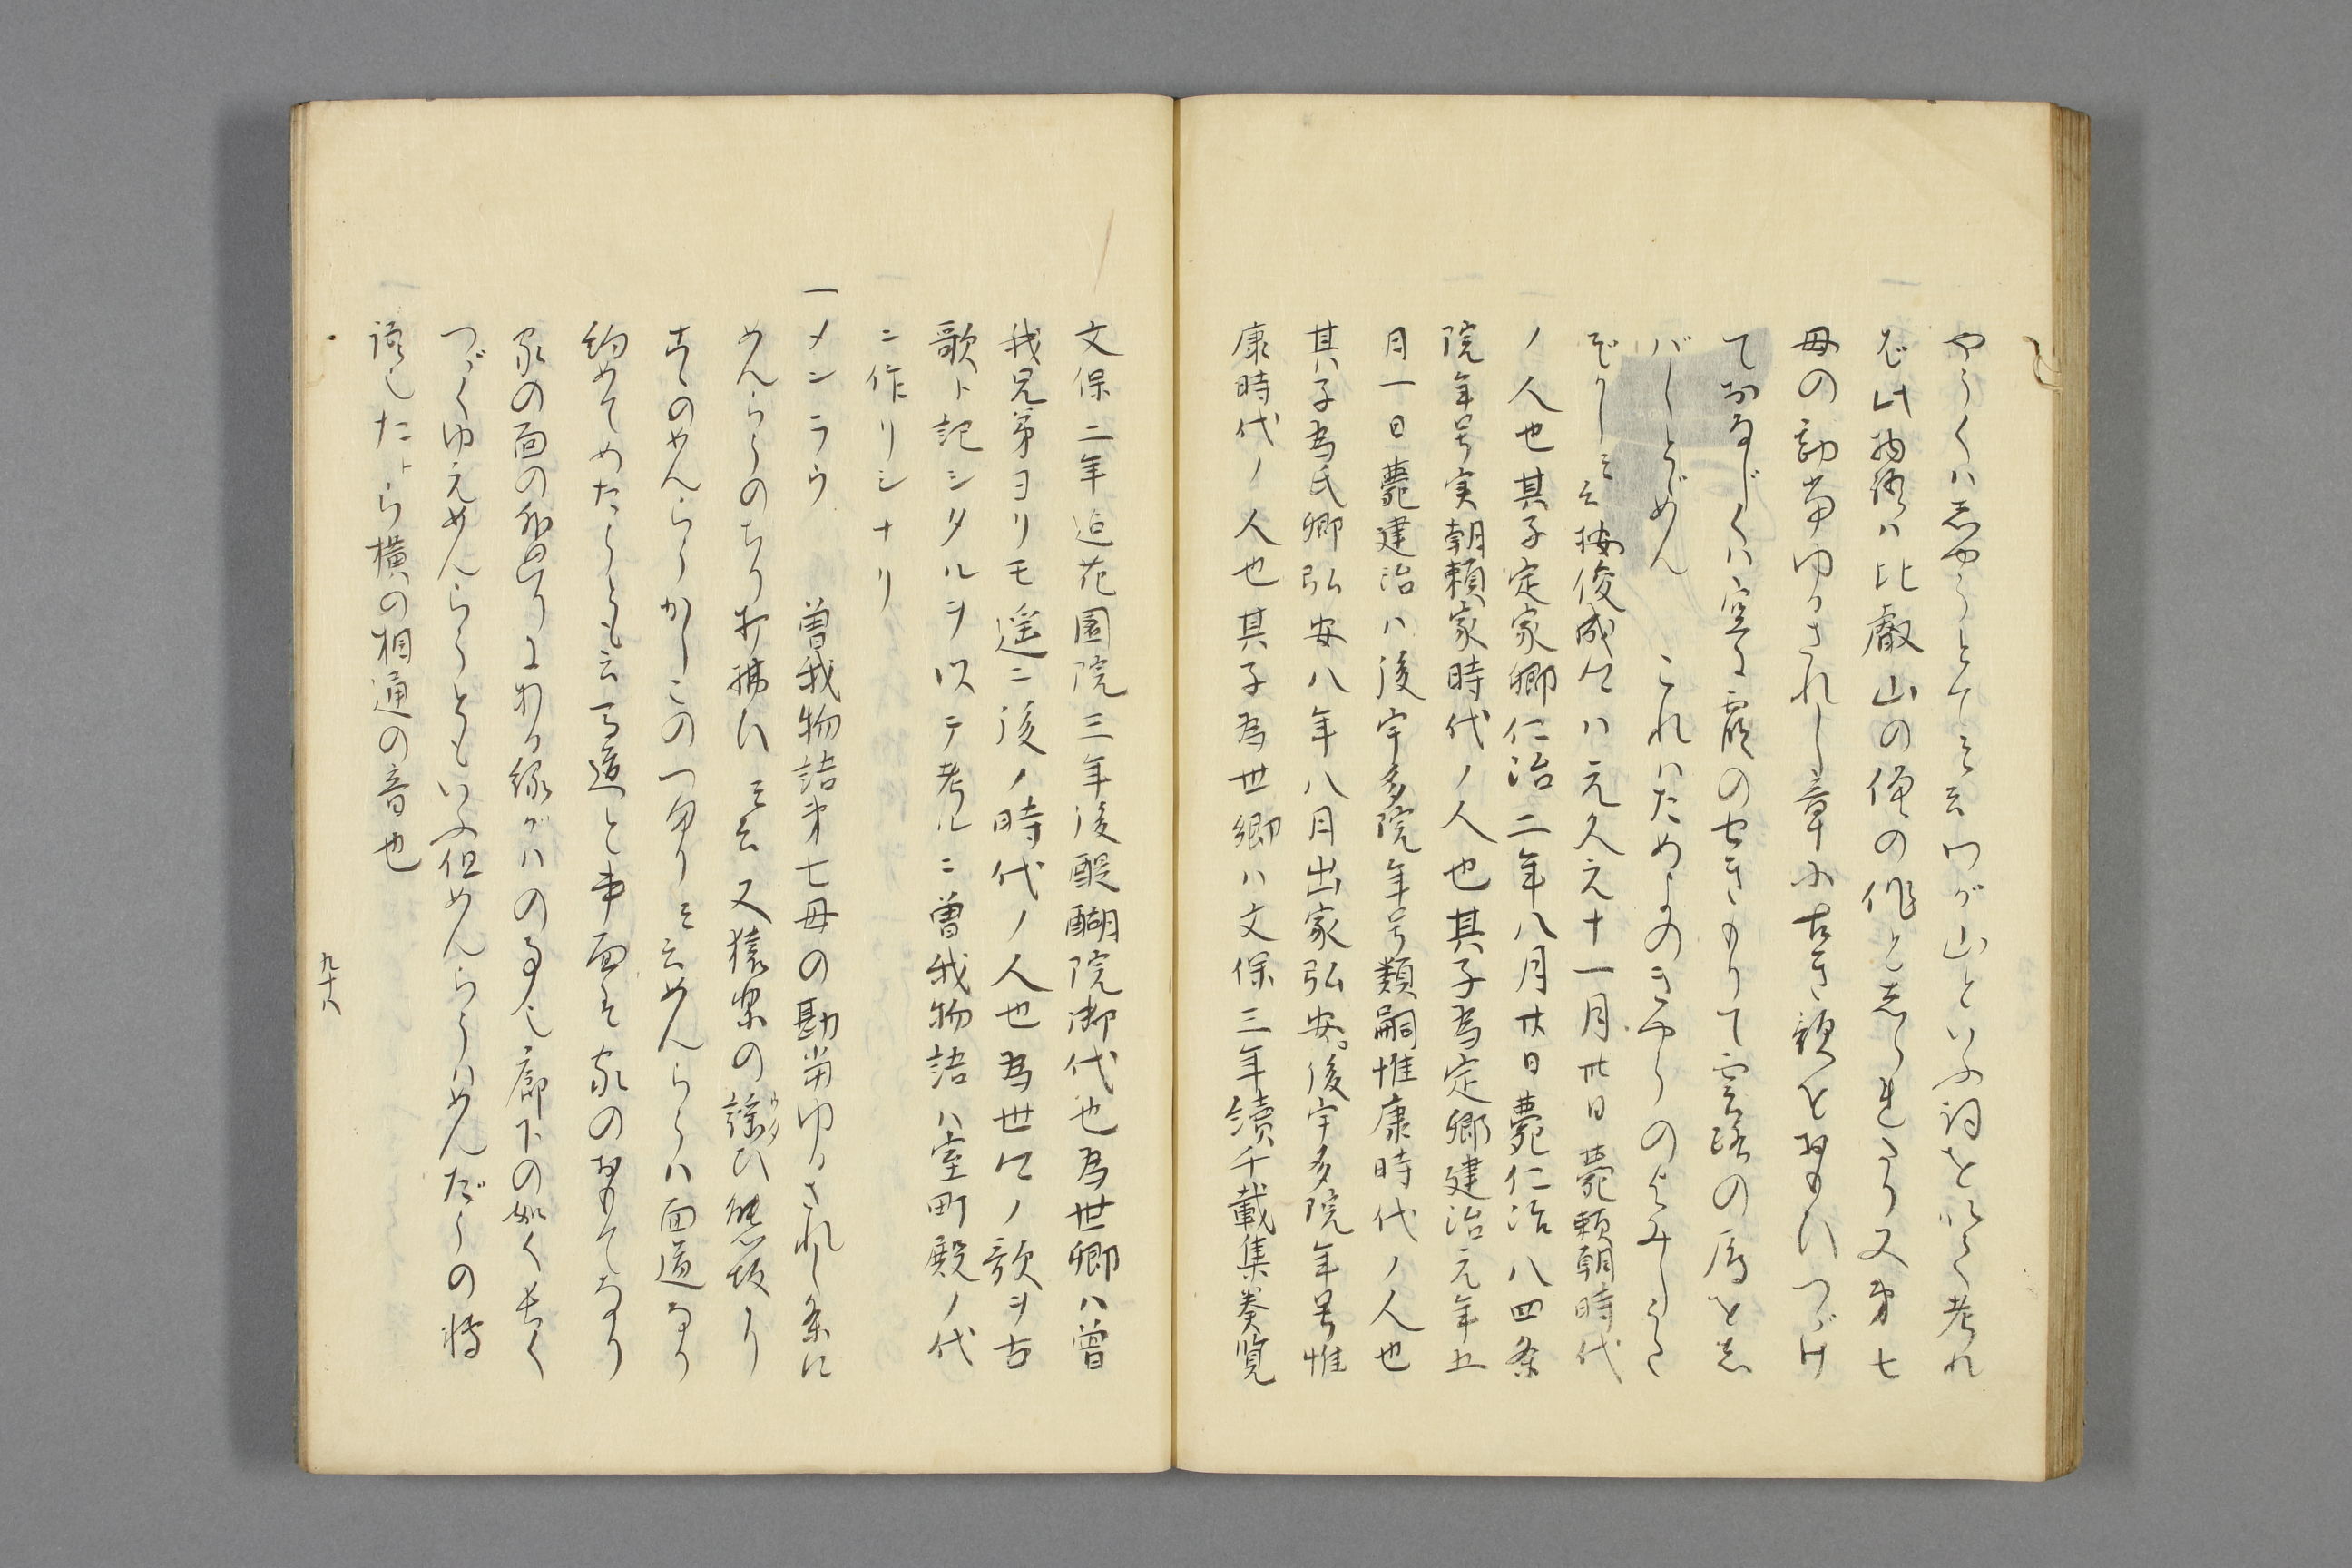 やうくハしやうとて云云わが山といふ詞を以て考れ
ば此物語ハ比叡山の僧の作としられたり又第七
母の勘当ゆるされし章に古き歌とおもひつゞけ
ておなじくハ空に霞のせきもりて雲路の雁をし
バしとゞめん　これハためよのきやうのよみしうた
ぞかし云云按俊成仁ハ元久元十一月卅日薨頼朝時代
ノ人也其子定家卿仁治二年八月廿日薨仁治ハ四条
院年号実朝頼家時代ノ人也其子為定卿建治元年五
月一日薨建治ハ後宇多院年号類嗣惟康時代ノ人也
其子為氏卿弘安八年八月出家弘安後宇多院年号惟
康時代ノ人也其子為世卿ハ文保三年續千載集奏覧
文保二年迄花園院三年後醍醐院御代也為世卿ハ曽
我兄弟ヨリモ遥ニ後ノ時代ノ人也為世仁ノ歌ヲ古
歌ト記シタルヲ以テ考ルニ曽我物語ハ室町殿ノ代
ニ作リシナリ
一メンラウ　曽我物語第七母の勘当ゆるされし条に
めんらうのちり打拂ひ云云又猿楽の謡ひ熊坂に
こゝのめんらうかしこの つまり云云めんらうハ面道なり
約めてめたうとも云馬道と書面そ家のおもてなり
家の面の外通りにある縁がハの事也廊下の如く長く
つゞくゆえめんらうともいふ但めんらうハめんだうの転
語也たトら横の相通の音也
九十八